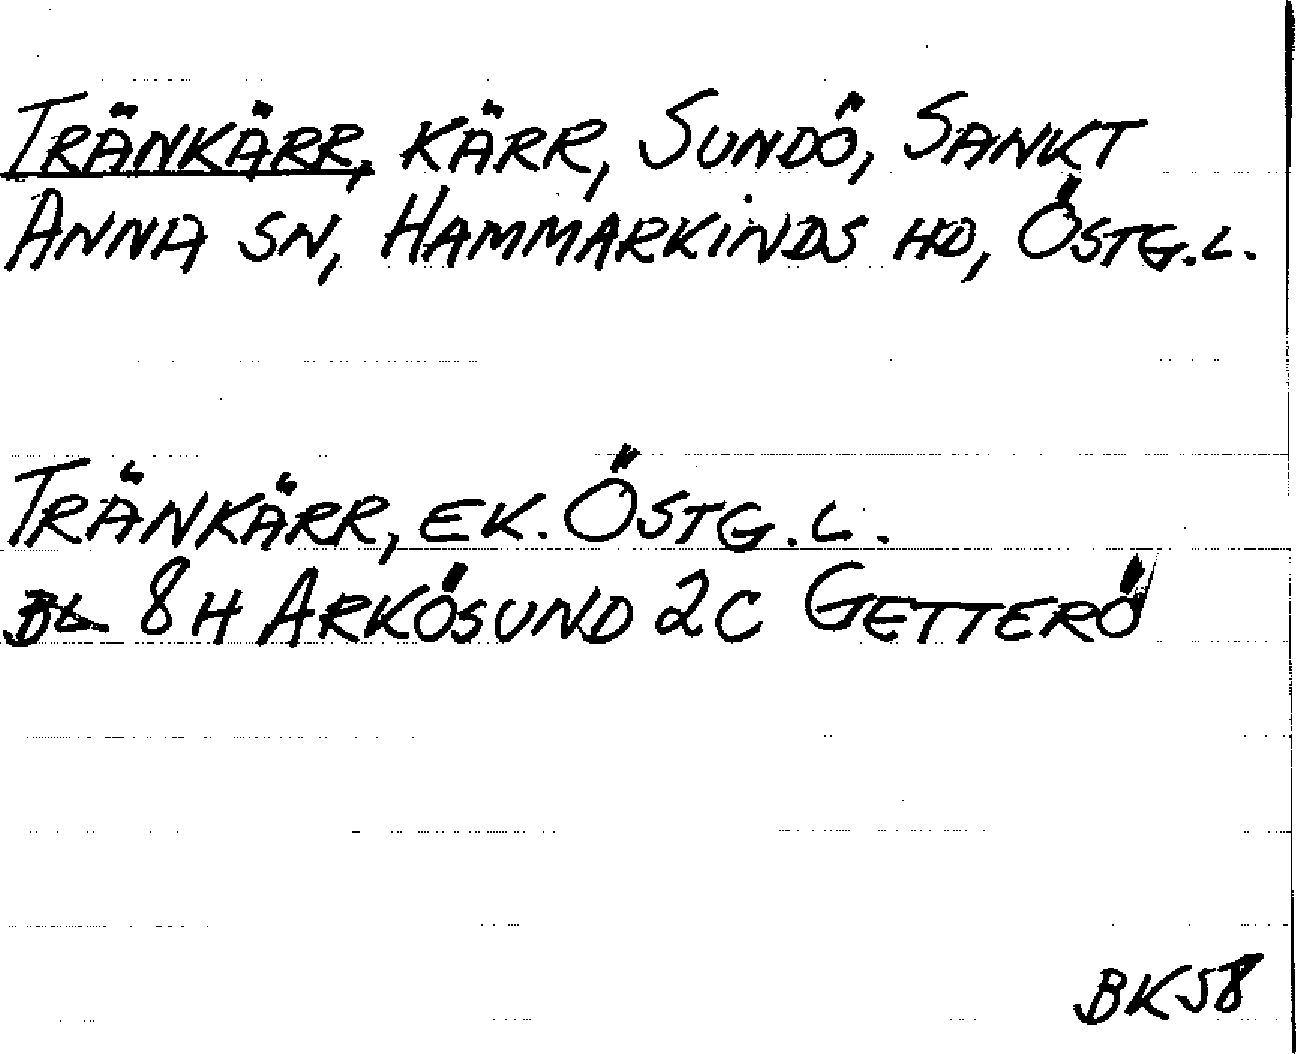 TRÄNKÄRR, KÄRR, SUNDÖ, SANKT
ANNA SN, HAMMARKINDS HD, ÖSTG.L.
TRÄNKÄRR, EK. ÖSTG.L.
BL 8H ARKÖSUND 2C GETTERÖ
BK58